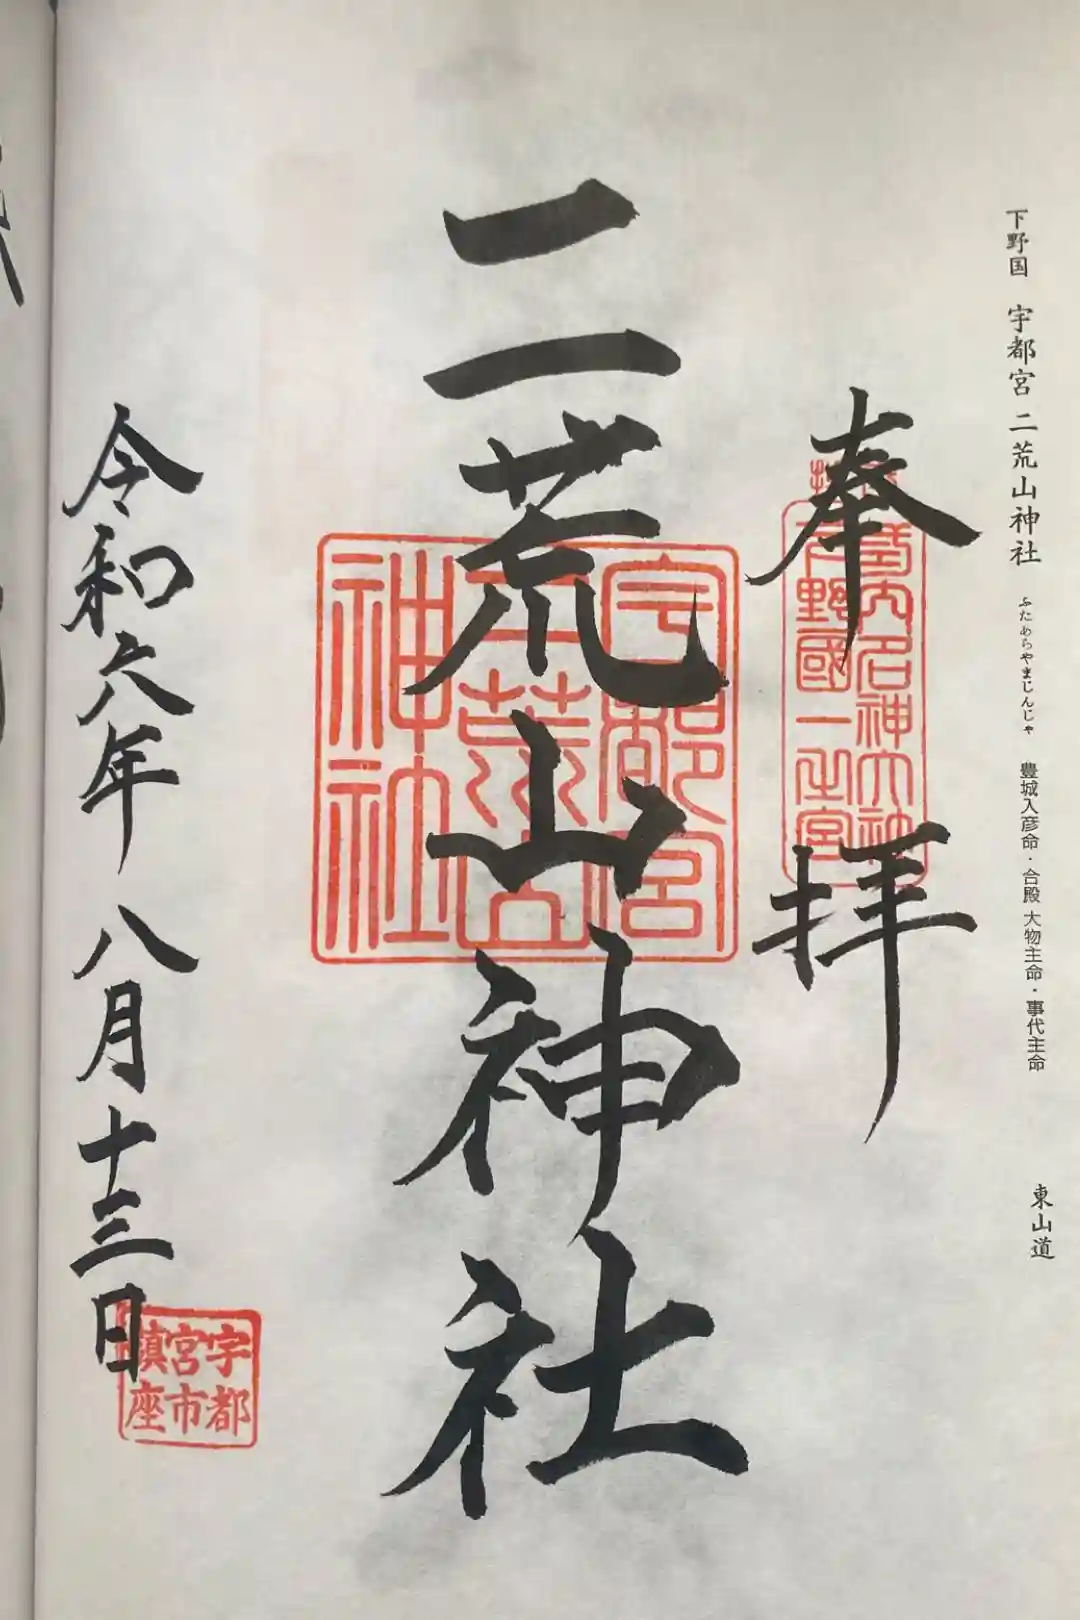 下野国 宇都宮 二荒山神社 ふたあらやまじんじゃ 豊城入彦命・合殿 大物主命・事代主命 東山道
奉拝
下野國一之宮
二荒山神社
宇都宮
二荒山
神社
令和六年八月十三日
宇都
宮市
鎮座